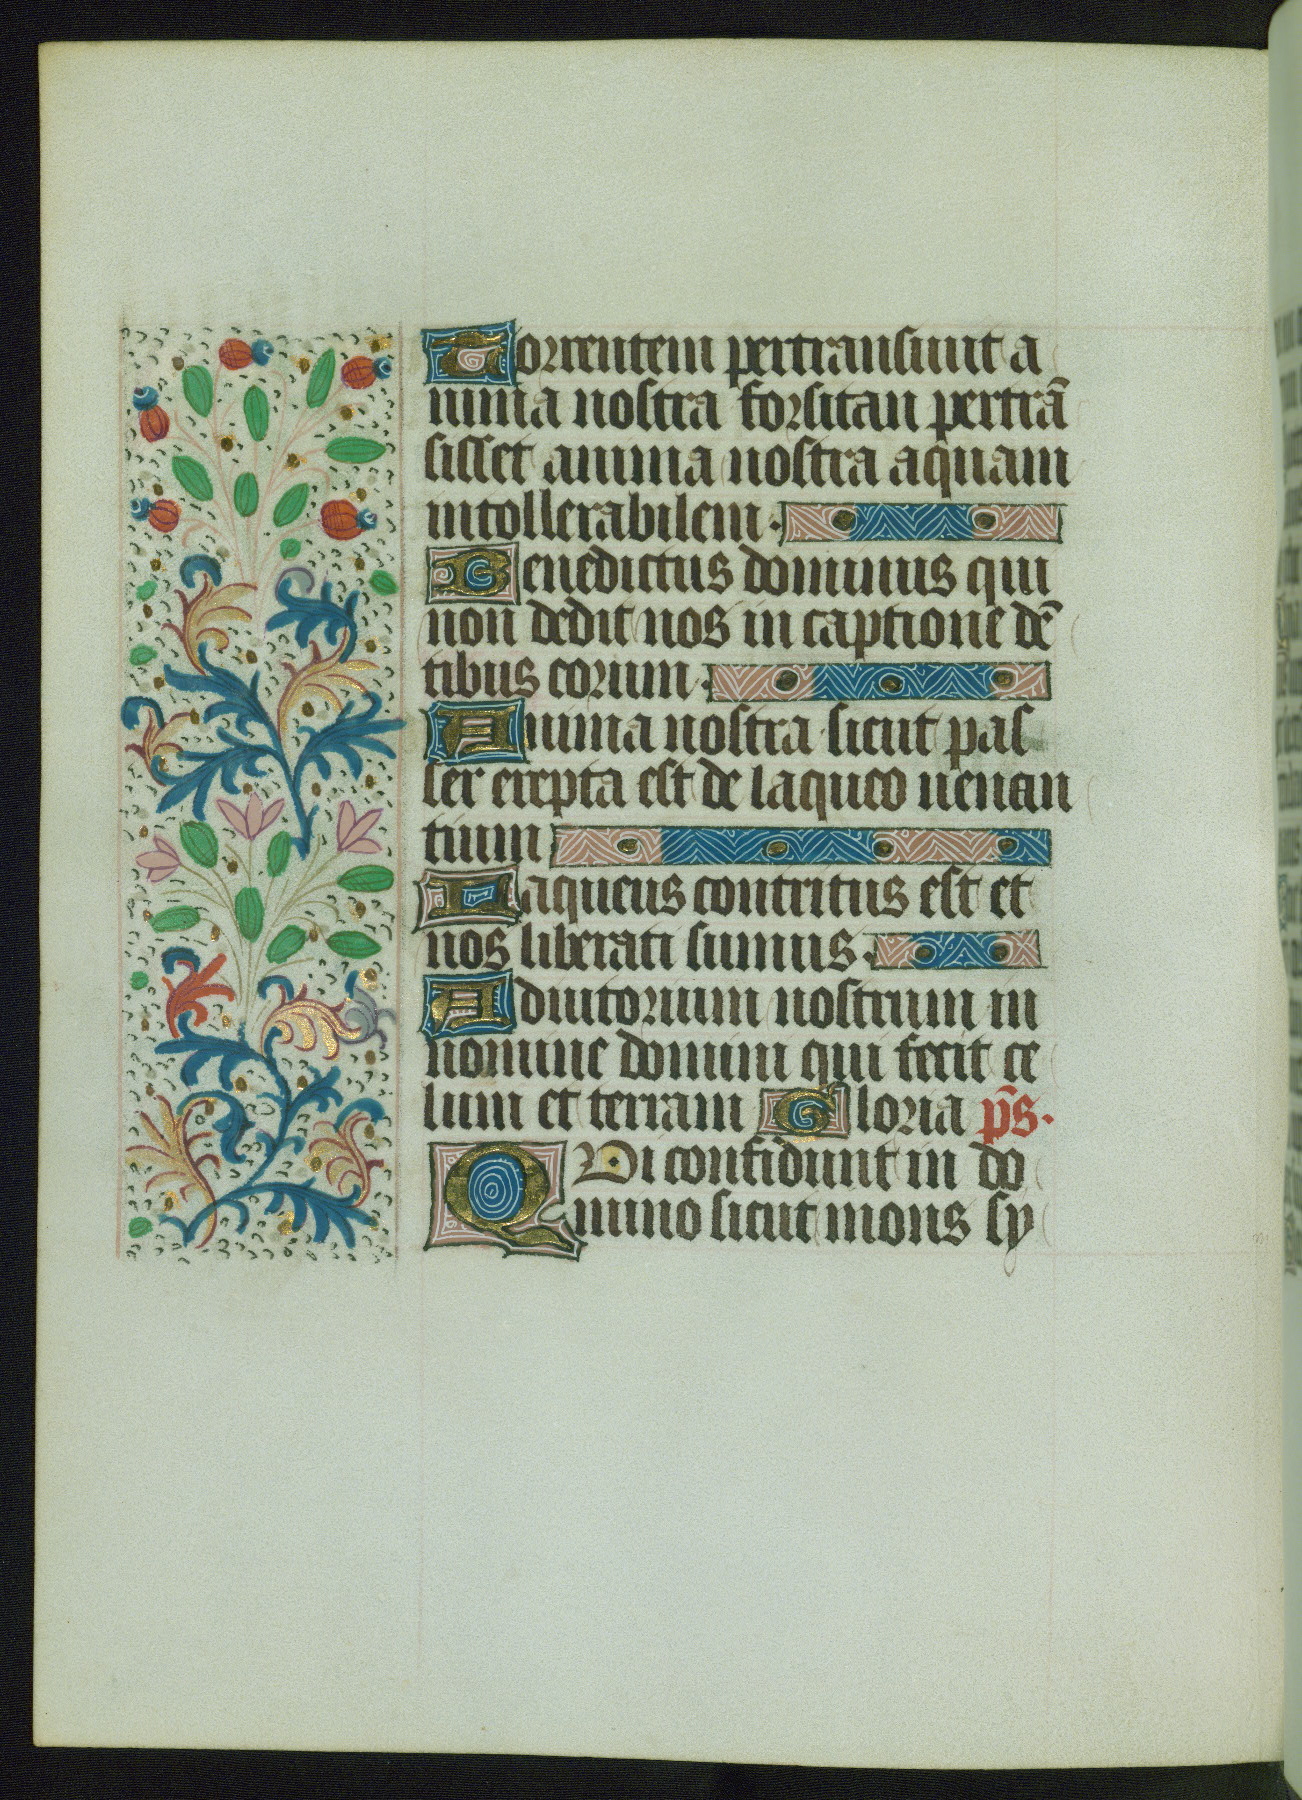 Torrentem pertransiuit a
nima nostra forsitan pertrā
sisset anima nostra aquam
intollerabilem.
Benedictus dominus qui
non dedit nos in captione dē
tibus eorum.
Anima nostra sicut pas
ser erepta est de laqueo uenan
tium
Laqueus contritus est et
nos liberati sumus.
Adiutorium nostrum in
nomine domini qui fecit ce
lum et terram Gloria p̄s.
QVi confidunt in do
mino sicut mons sy